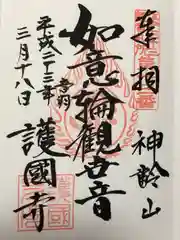 奉拝
神齢山
如意輪觀世音
音羽
護國寺
平成二十三年
三月十八日